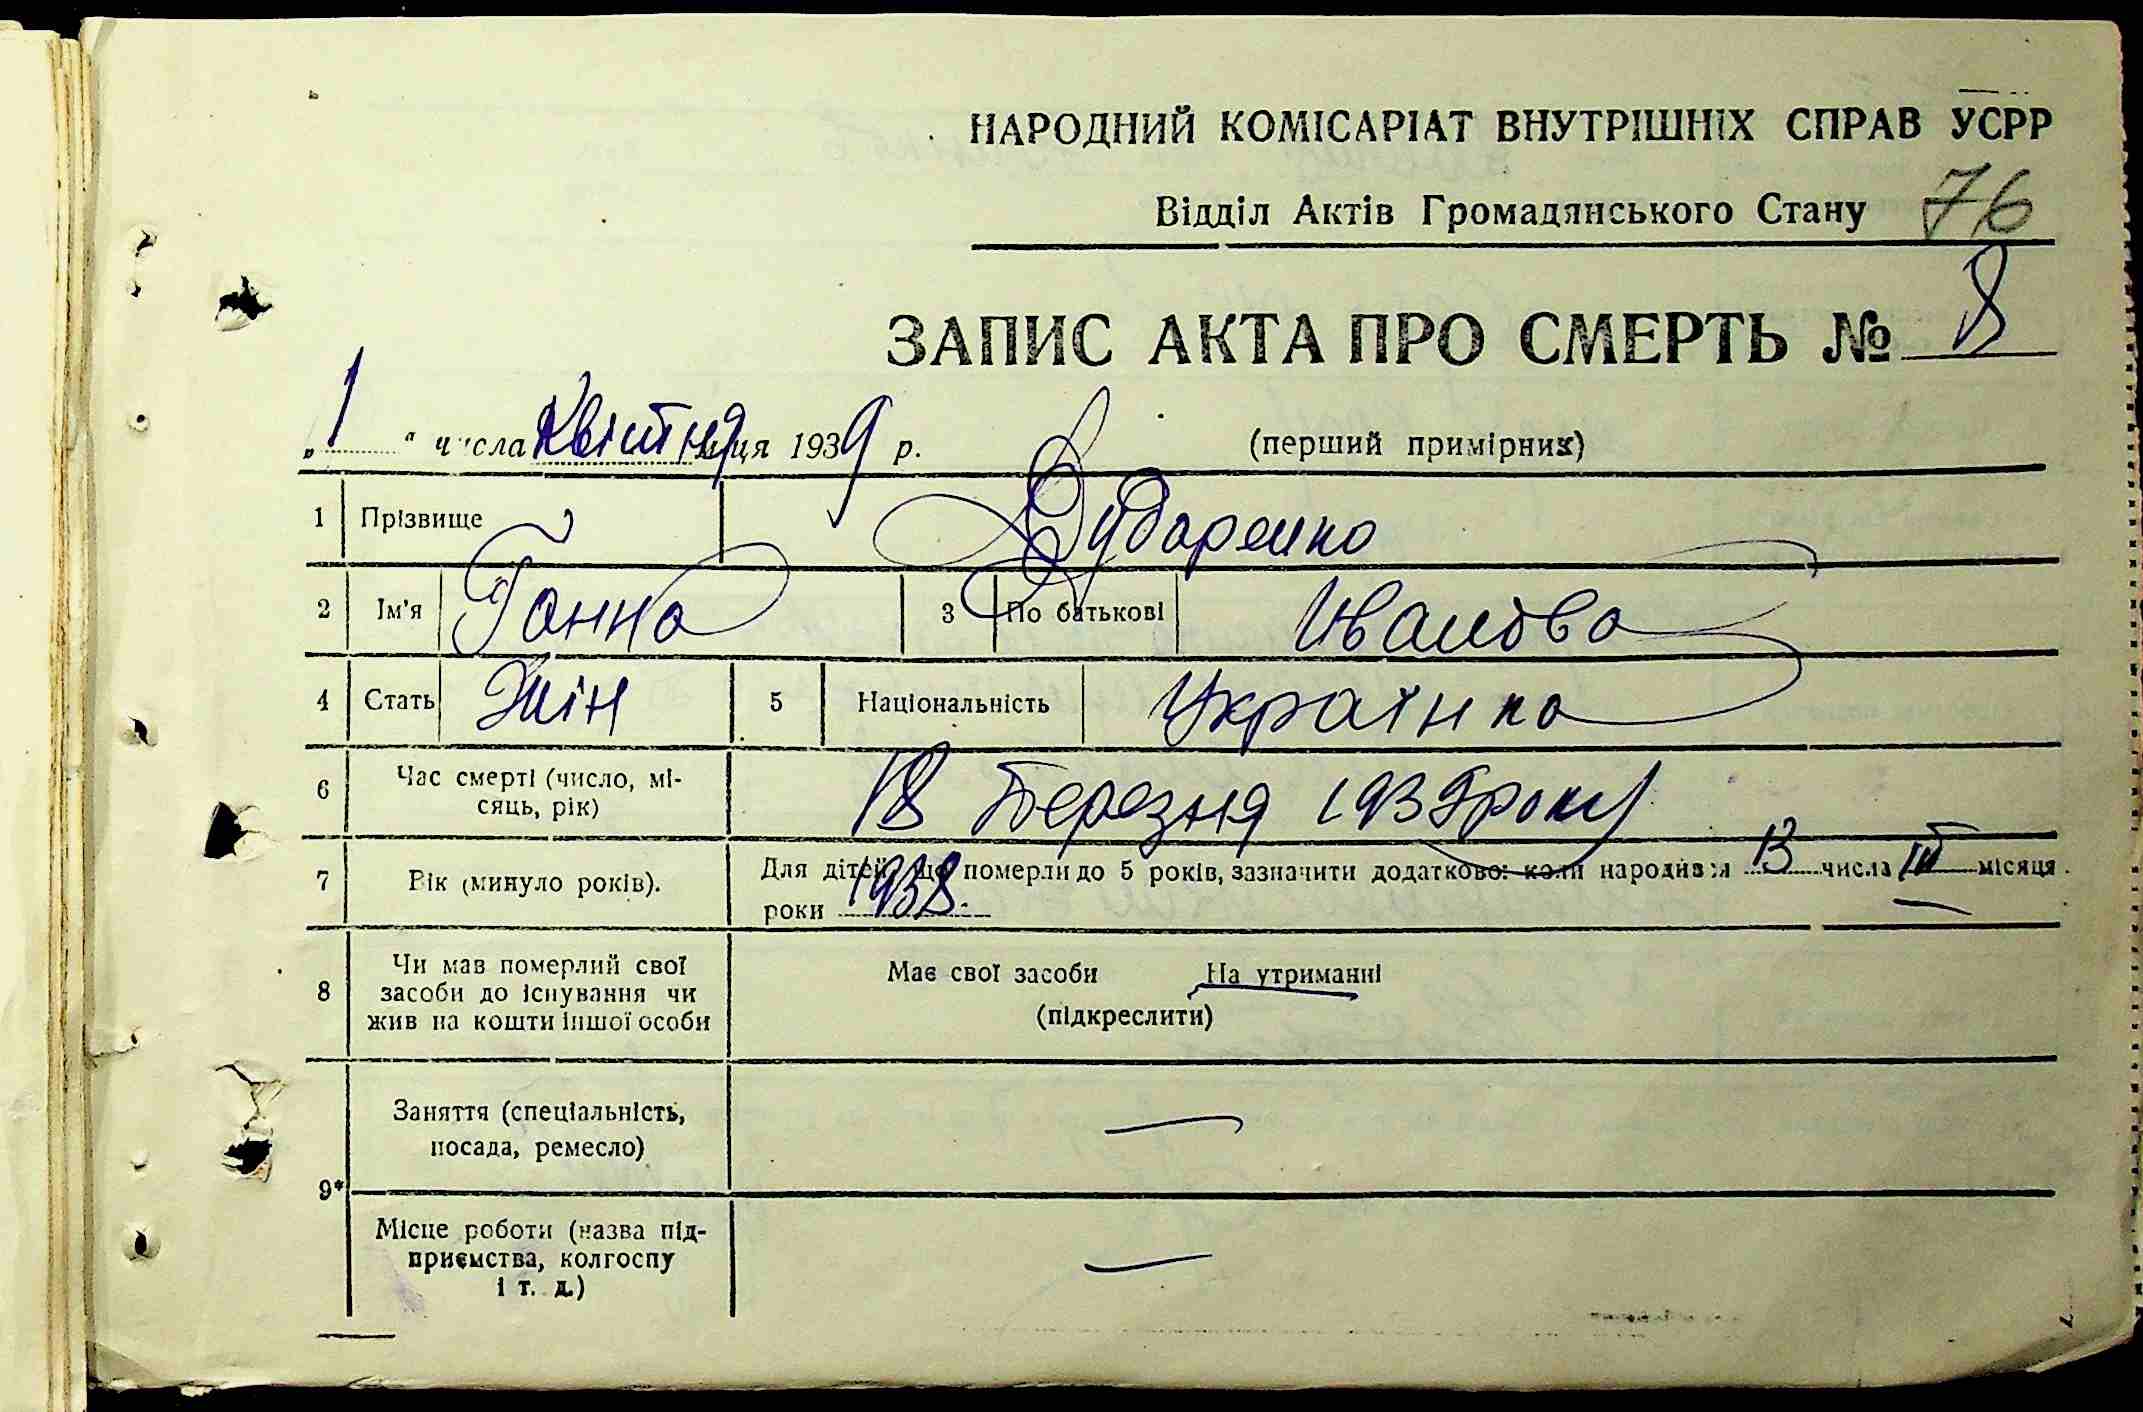 НАРОДНИЙ КОМІСАРІАТ ВНУТРІШНІХ СПРАВ УСРР
Відділ Актів Громадянського Стану 76
ЗАПИС АКТА ПРО СМЕРТЬ № 8
„1“ числа Квітня місяця 1939 р. (перший примірник)
1 Прізвище Дударенко
2 Ім'я Ганна 3 По батькові Иванова
4 Стать Жін 5 Національність Українка
6 Час смерті (число, мі-
сяць, рік) 18 Березня 1939 року
7 Вік (минуло років). Для дітей, що померли до 5 років, зазначити додатково: коли народився 13 числа III місяця
роки 1938.
8 Чи мав померлий свої
засоби до існування чи
жив на кошти іншої особи
Має свої засоби На утриманні
(підкреслити)
9* Заняття (спеціальність,
посада, ремесло) —
Місце роботи (назва під-
приємства, колгоспу
і т. д.) —